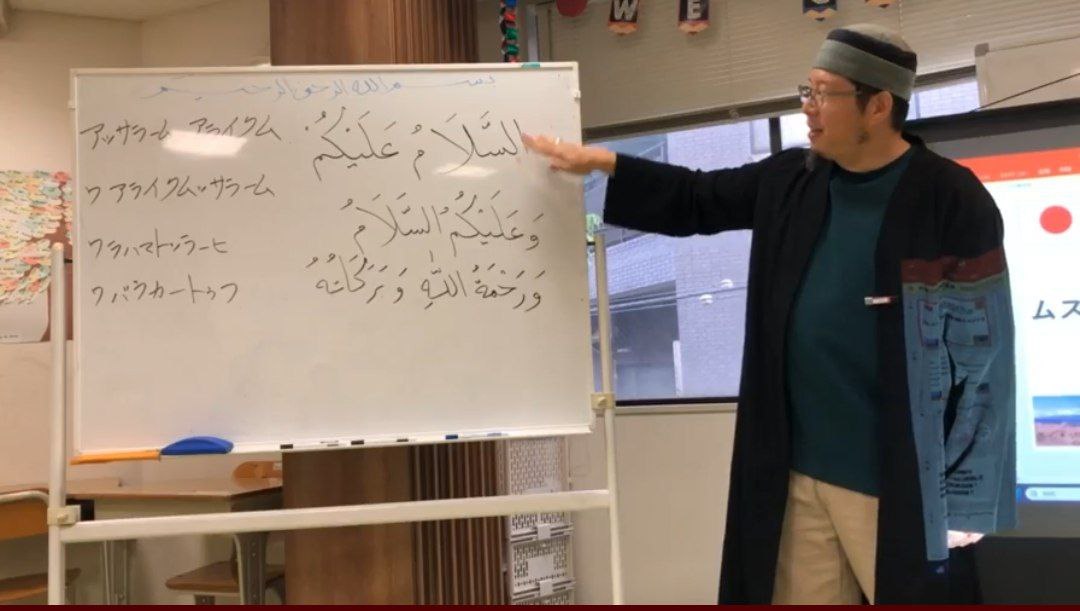 بسم الله الرحمن الرحيم
アッサラーム アライクム
السَّلَامُ عَلَيْكُمْ
ワ アライクムッサラーム
وَ عَلَيْكُمُ السَّلَامُ
ワラハマトゥッラーヒ
وَ رَحْمَةُ اللّٰهِ وَ بَرَكَاتُهُ
ワバラカートゥフ
W E
ムス